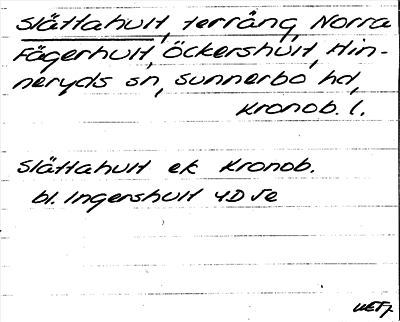 Slättahult, terräng, Norra
Fägerhult, Öckershult, Hin-
neryds sn, Sunnerbo hd,
Kronob. l.
Slättahult ek Kronob.
bl. Ingershult 4D 5e